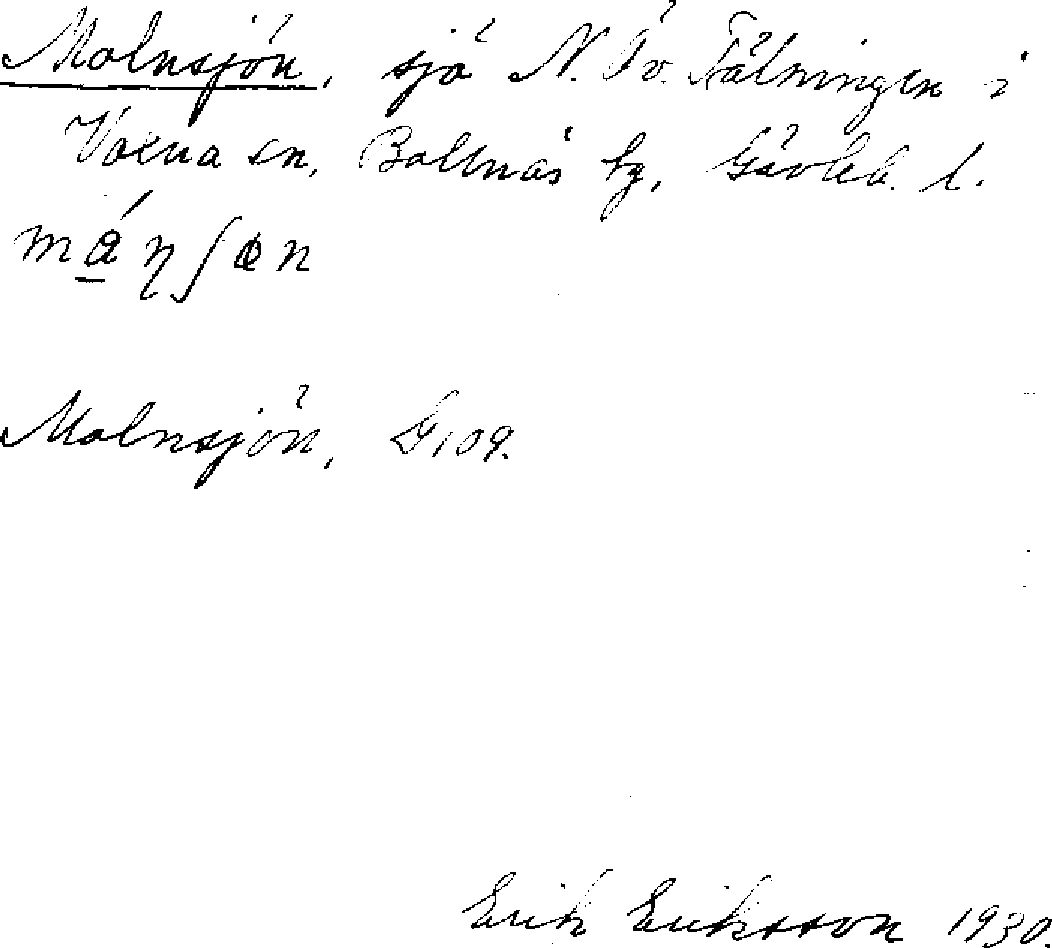 Molnsjön, sjö N. Öv. Fälningen i
Voxna sn, Bollnäs tg, Gävleb. l.
Molnsjön, G109.
Erik Eriksson 1930.